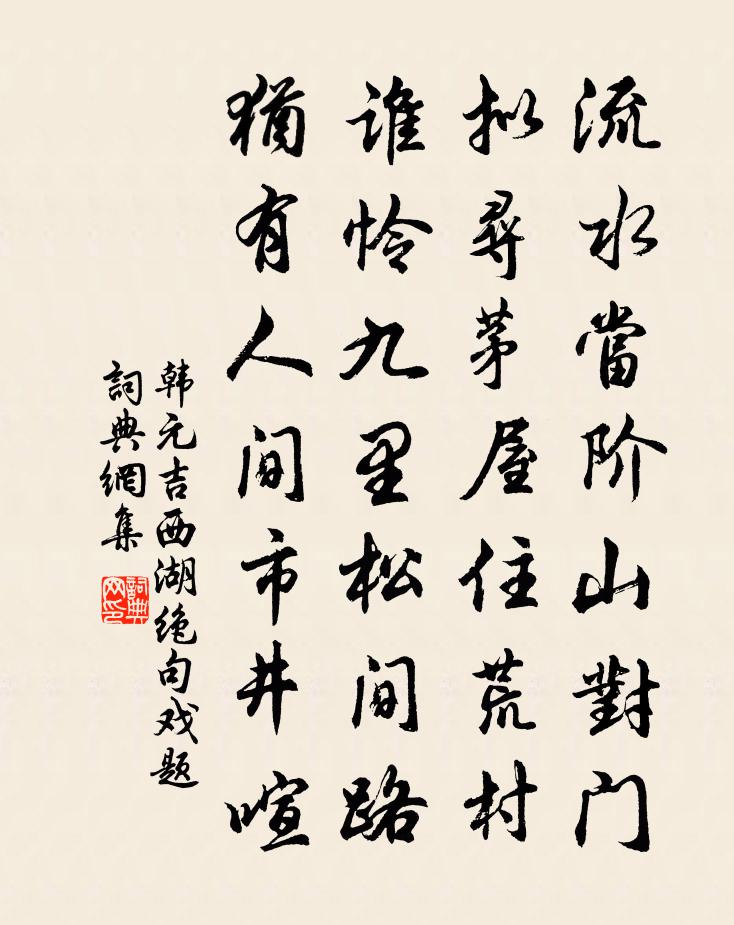 流水當阶山對门
拟尋茅屋住荒村
谁怜九里松间路
猶有人间市井喧
韩元吉西湖绝句戏题
詞典網集
詞典网印